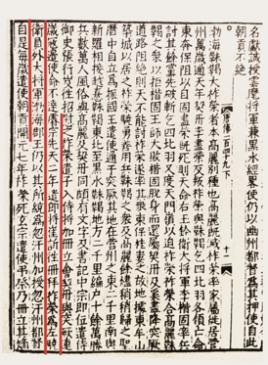 名獻誠授雲麾將軍兼黑水經略使仍以幽州都督為其押使自此
朝貢不絕
渤海靺鞨大祚榮者本高麗別種也高麗既滅祚榮率家屬徙居營
州萬歲通天年契丹李盡榮反叛祚榮與靺鞨乞四比羽各領亡命
東奔保阻以自固盡榮既死則天命右玉鈐衛大將軍李楷固率兵
討其餘黨先破斬乞四比羽又度天門嶺以迫祚榮祚榮合高麗靺
鞨之眾以拒楷固王師大敗楷固脫身而還屬契丹及奚盡降突厥
道路阻絕則天不能討祚榮遂率其眾東保桂婁之故地據東牟山
唐傳一百四十九下 十一
築城以居之祚榮驍勇善用兵靺鞨之眾及高麗餘燼稍稍歸之聖
曆中自立為振國王遣使通于突厥其地在營州之東二千里南與
新羅相接越憙靺鞨東北至黑水靺鞨地方二千里編戶十餘萬勝
兵數萬人風俗與高麗及契丹同頗有文字及書記中宗即位遣侍
御史張行岌往招慰之祚榮遣子入侍將加冊立會契丹與突厥連
歲寇邊使命不達睿宗先天二年遣郎將崔訢往冊拜祚榮為左驍
衛員外大將軍渤海郡王仍以其所統為忽汗州加授忽汗州都督
自是每歲遣使朝貢開元七年祚榮死玄宗遣使弔祭乃冊立其嫡